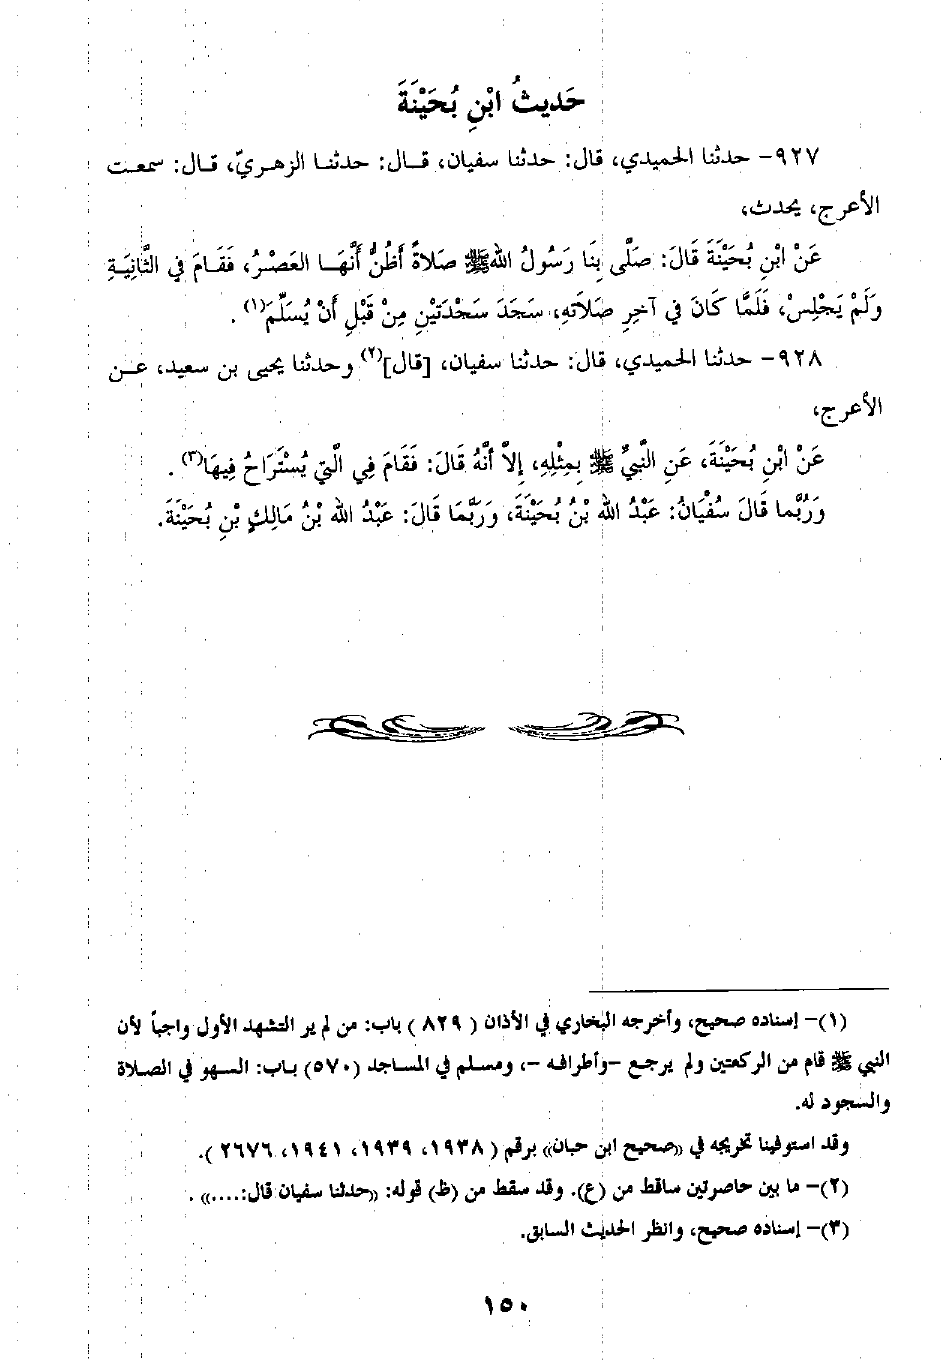 حَديثُ ابْنِ بُحَيْنَةَ
٩٢٧- حدثنا الحميدي، قال: حدثنا سفيان، قال: حدثنا الزهريّ، قال: سمعت
الأعرج، يحدث،
عَنْ ابْنِ بُحَيْنَةَ قَالَ: صَلَّى بِنَا رَسُولُ اللهﷺ صَلاةً أَظُنُّ أَنَّهَا العَصْرُ، فَقَامَ في الثَّانِيَةِ
وَلَمْ يَجْلِسْ، فَلَمَّا كَانَ في آخِرِ صَلاَتِهِ، سَجَدَ سَجْدَتَيْنِ مِنْ قَبْلِ أَنْ يُسَلِّمَ(١) .
٩٢٨- حدثنا الحميدي، قال: حدثنا سفيان، [قال](٢) وحدثنا يحيى بن سعيد، عن
الأعرج،
عَنْ ابْنِ بُحَيْنَةَ، عَنِ النَّبِيِّ ﷺ بِمِثْلِهِ، إِلاَّ أنَّهُ قَالَ: فَقَامَ فِي الَّتِي يُسْتَرَاحُ فِيهَا(٣) .
وَرُبَّما قَالَ سُفْيَانُ: عَبْدُ اللهِ بْنُ بُحَيْنَةَ، وَرَبَّمَا قَالَ: عَبْدُ اللهِ بْنُ مَالِكٍ بْنِ بُحَيْنَةَ.
(١)- إسناده صحيح، وأخرجه البخاري في الأذان ( ٨٢٩ ) باب: من لم ير التشهد الأول واجباً لأن
النبي ﷺ قام من الركعتين ولم يرجع -وأطرافه -، ومسلم في المساجد (٥٧٠) باب: السهو في الصلاة
والسجود له.
وقد استوفينا تخريجه في «صحيح ابن حبان» برقم ( ١٩٣٨، ١٩٣٩، ١٩٤١، ٢٦٧٦ ).
(٢)- ما بين حاصرتين ساقط من (ع). وقد سقط من (ظ) قوله: «حدثنا سفيان قال:....» .
(٣)- إسناده صحيح، وانظر الحديث السابق.
١٥٠